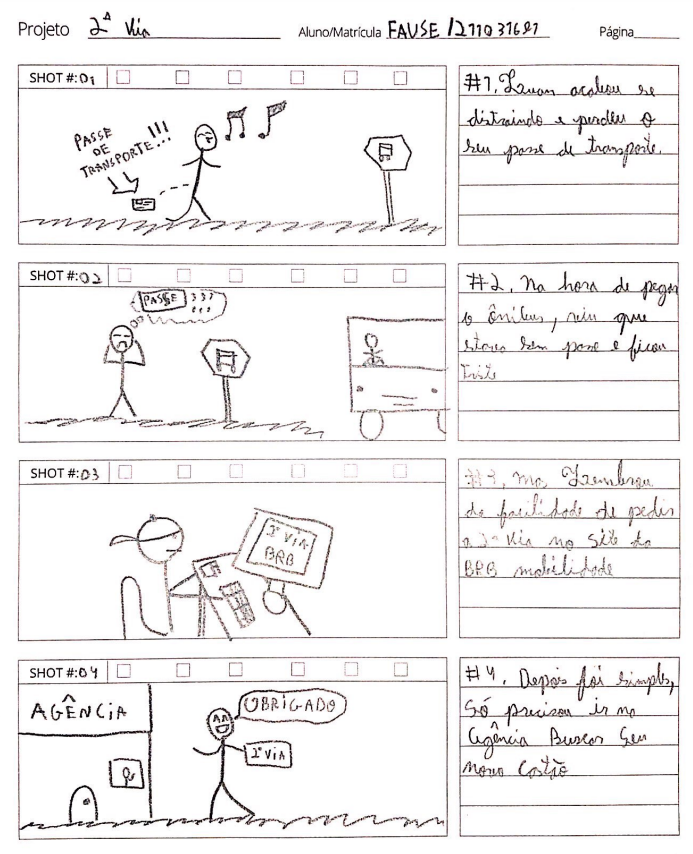 Projeto 2ª Via Aluno/Matrícula FAUSE / 211031691 Página
SHOT #:01
PASSE
DE
TRANSPORTE...!!!
#1. Luan acabou se
distraindo e perdeu o
seu passe de transporte.
SHOT #:02
PASSE ???
!!!
#2. Na hora de pegar
o ônibus, viu que
estava sem passe e ficou
triste
SHOT #:03
2ª VIA
BRB
#3, mas Lembrou
da facilidade de pedir
a 2ª Via no site do
BRB mobilidade
SHOT #:04
AGÊNCIA
OBRIGADO
2ª VIA
#4. Depois foi simples,
Só precisou ir na
agência Buscar Seu
novo Cartão